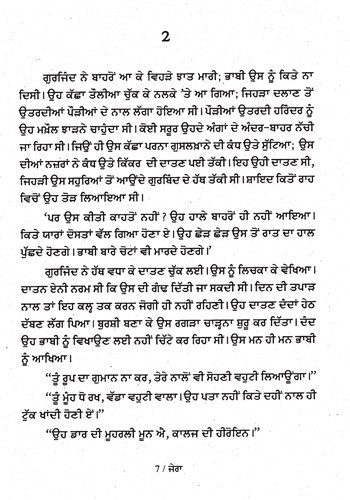 2
ਗੁਰਜਿੰਦ ਨੇ ਬਾਹਰੋਂ ਆ ਕੇ ਵਿਹੜੇ ਝਾਤ ਮਾਰੀ; ਭਾਬੀ ਉਸ ਨੂੰ ਕਿਤੇ ਨਾ
ਦਿਸੀ। ਉਹ ਕੱਛਾ ਤੌਲੀਆ ਚੁੱਕ ਕੇ ਨਲਕੇ 'ਤੇ ਆ ਗਿਆ; ਜਿਹੜਾ ਦਲਾਣ ਤੋਂ
ਉਤਰਦੀਆਂ ਪੌੜੀਆਂ ਦੇ ਨਾਲ ਲੱਗਾ ਹੋਇਆ ਸੀ। ਪੌੜੀਆਂ ਉਤਰਦੀ ਹਰਿੰਦਰ ਨੂੰ
ਉਹ ਮਖ਼ੌਲ ਝਾੜਨੇ ਚਾਹੁੰਦਾ ਸੀ। ਕੋਈ ਸਰੂਰ ਉਹਦੇ ਅੰਗਾਂ ਦੇ ਅੰਦਰ-ਬਾਹਰ ਨੱਚੀ
ਜਾ ਰਿਹਾ ਸੀ। ਜਿਉਂ ਹੀ ਉਸ ਕੱਛਾ ਪਰਨਾ ਗੁਸਲਖ਼ਾਨੇ ਦੀ ਕੰਧ ਉਤੇ ਸੁੱਟਿਆ; ਉਸ
ਦੀਆਂ ਨਜ਼ਰਾਂ ਨੇ ਕੰਧ ਉਤੇ ਕਿੱਕਰ ਦੀ ਦਾਤਣ ਪਈ ਤੱਕੀ। ਇਹ ਉਹੀ ਦਾਤਣ ਸੀ,
ਜਿਹੜੀ ਉਸ ਸਹੁਰਿਆਂ ਤੋਂ ਆਉਂਦੇ ਗੁਰਬਿੰਦ ਦੇ ਹੱਥ ਤੱਕੀ ਸੀ। ਸ਼ਾਇਦ ਕਿਤੋਂ ਰਾਹ
ਵਿਚੋਂ ਉਹ ਤੋੜ ਲਿਆਇਆ ਸੀ।
'ਪਰ ਉਸ ਕੀਤੀ ਕਾਹਤੋਂ ਨਹੀਂ ? ਉਹ ਹਾਲੇ ਬਾਹਰੋਂ ਹੀ ਨਹੀਂ ਆਇਆ।
ਕਿਤੇ ਯਾਰਾਂ ਦੋਸਤਾਂ ਵੱਲ ਗਿਆ ਹੋਣਾ ਏ। ਉਹ ਛੇੜ ਛੇੜ ਉਸ ਤੋਂ ਰਾਤ ਦਾ ਹਾਲ
ਪੁੱਛਦੇ ਹੋਣਗੇ। ਭਾਬੀ ਬਾਰੇ ਚੋਟਾਂ ਵੀ ਮਾਰਦੇ ਹੋਣਗੇ।'
ਗੁਰਜਿੰਦ ਨੇ ਹੱਥ ਵਧਾ ਕੇ ਦਾਤਣ ਚੁੱਕ ਲਈ। ਉਸ ਨੂੰ ਲਿਚਕਾ ਕੇ ਵੇਖਿਆ।
ਦਾਤਣ ਏਨੀ ਨਰਮ ਸੀ ਕਿ ਉਸ ਦੀ ਗੰਢ ਦਿੱਤੀ ਜਾ ਸਕਦੀ ਸੀ। ਦਿਨ ਦੀ ਤਪਾੜ
ਨਾਲ ਤਾਂ ਇਹ ਕਲ੍ਹ ਤਕ ਕਰਨ ਜੋਗੀ ਹੀ ਨਹੀਂ ਰਹਿਣੀ। ਉਹ ਦਾਤਣ ਦੰਦਾਂ ਹੇਠ
ਦੱਬਣ ਲੱਗ ਪਿਆ। ਬੁਰਸ਼ੀ ਬਣਾ ਕੇ ਉਸ ਰਗੜਾ ਚਾੜ੍ਹਨਾ ਸ਼ੁਰੂ ਕਰ ਦਿੱਤਾ। ਦੰਦ
ਉਹ ਭਾਬੀ ਨੂੰ ਵਿਖਾਉਣ ਲਈ ਨਹੀਂ ਚਿੱਟੇ ਕਰ ਰਿਹਾ ਸੀ। ਉਸ ਮਨ ਹੀ ਮਨ ਭਾਬੀ
ਨੂੰ ਆਖਿਆ।
"ਤੂੰ ਰੂਪ ਦਾ ਗੁਮਾਨ ਨਾ ਕਰ, ਤੇਰੇ ਨਾਲੋਂ ਵੀ ਸੋਹਣੀ ਵਹੁਟੀ ਲਿਆਊਂਗਾ।"
"ਤੂੰ ਮੂੰਹ ਧੋ ਰਖ, ਵੱਡਾ ਵਹੁਟੀ ਵਾਲਾ। ਉਹ ਪਤਾ ਨਹੀਂ ਕਿਤੇ ਦਹੀਂ ਨਾਲ ਹੀ
ਟੁੱਕ ਖਾਂਦੀ ਹੋਣੀ ਏਂ।"
"ਉਹ ਡਾਰ ਦੀ ਮੂਹਰਲੀ ਮੂਨ ਐ, ਕਾਲਜ ਦੀ ਹੀਰੋਇਨ।"
7 / ਜੇਰਾ